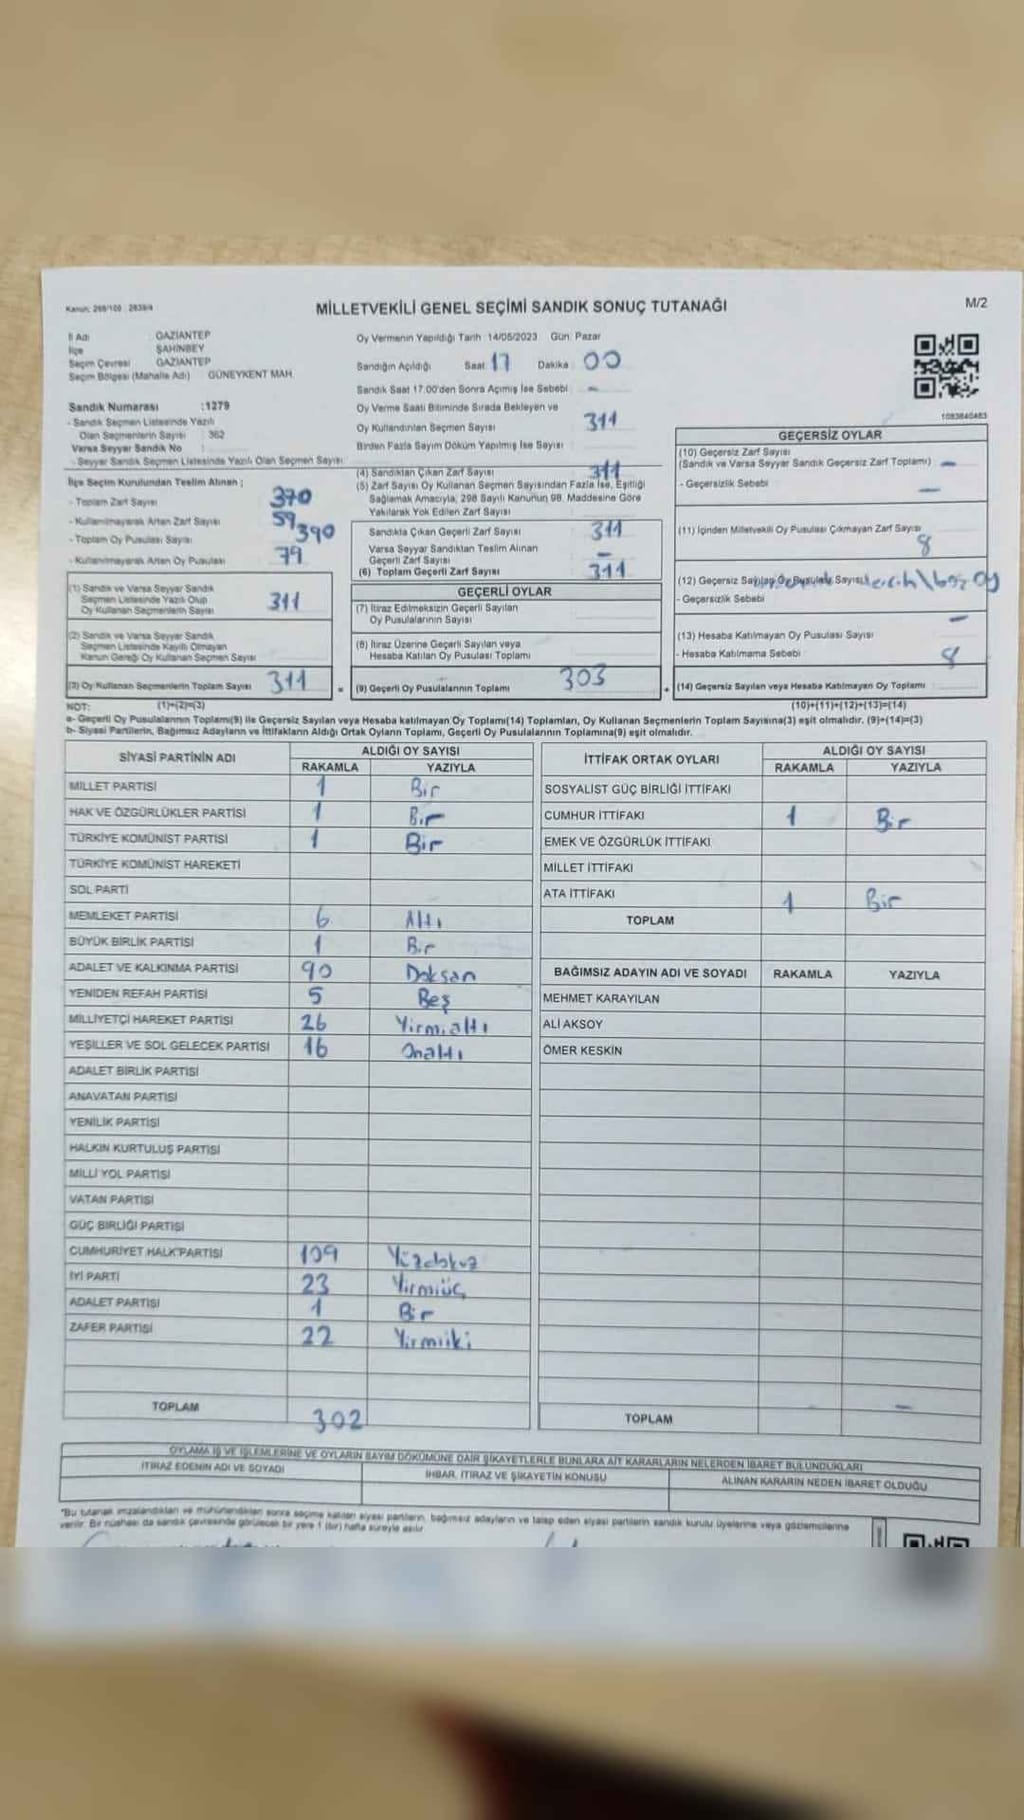 Kanun: 298/105 2839/4
MİLLETVEKİLİ GENEL SEÇİMİ SANDIK SONUÇ TUTANAĞI
M/2
İl Adı : GAZİANTEP
İlçe : ŞAHİNBEY
Seçim Çevresi : GAZİANTEP
Seçim Bölgesi (Mahalle Adı) : GÜNEYKENT MAH.
Oy Vermenin Yapıldığı Tarih :14/05/2023 Gün: Pazar
Sandığın Açıldığı Saat: 17 Dakika : 00
Sandık Saat 17.00'den Sonra Açımış İse Sebebi : -
Oy Verme Saati Bitiminde Sırada Bekleyen ve
Oy Kullandırılan Seçmen Sayısı 311
Birden Fazla Sayım Döküm Yapılmış İse Sayısı :
1083840483
Sandık Numarası :1279
- Sandık Seçmen Listesinde Yazılı
Olan Seçmenlerin Sayısı : 362
Varsa Seyyar Sandık No :
- Seyyar Sandık Seçmen Listesinde Yazılı Olan Seçmen Sayısı
İlçe Seçim Kurulundan Teslim Alınan ;
- Toplam Zarf Sayısı 370
- Kullanılmayarak Artan Zarf Sayısı 59
- Toplam Oy Pusulası Sayısı 390
- Kullanılmayarak Artan Oy Pusulası 79
(1) Sandık ve Varsa Seyyar Sandık
Seçmen Listesinde Yazılı Olup
Oy Kullanan Seçmenlerin Sayısı 311
(2) Sandık ve Varsa Seyyar Sandık
Seçmen Listesinde Kayıtlı Olmayan
Kanun Gereği Oy Kullanan Seçmen Sayısı
(3) Oy Kullanan Seçmenlerin Toplam Sayısı 311
(1)+(2)=(3)
(4) Sandıktan Çıkan Zarf Sayısı 311
(5) Zarf Sayısı Oy Kullanan Seçmen Sayısından Fazla İse, Eşitliği
Sağlamak Amacıyla, 298 Sayılı Kanunun 98. Maddesine Göre
Yakılarak Yok Edilen Zarf Sayısı
Sandıkta Çıkan Geçerli Zarf Sayısı 311
Varsa Seyyar Sandıktan Teslim Alınan
Geçerli Zarf Sayısı -
(6) Toplam Geçerli Zarf Sayısı 311
GEÇERLİ OYLAR
(7) İtiraz Edilmeksizin Geçerli Sayılan
Oy Pusulalarının Sayısı
(8) İtiraz Üzerine Geçerli Sayılan veya
Hesaba Katılan Oy Pusulası Toplamı
= (9) Geçerli Oy Pusulalarının Toplamı 303
GEÇERSİZ OYLAR
(10) Geçersiz Zarf Sayısı
(Sandık ve Varsa Seyyar Sandık Geçersiz Zarf Toplamı) -
- Geçersizlik Sebebi -
(11) İçinden Milletvekili Oy Pusulası Çıkmayan Zarf Sayısı
8
(12) Geçersiz Sayılan Oy Pusulası Sayısı boş oy
- Geçersizlik Sebebi -
(13) Hesaba Katılmayan Oy Pusulası Sayısı
- Hesaba Katılmama Sebebi 8
+ (14) Geçersiz Sayılan veya Hesaba Katılmayan Oy Toplamı
(10)+(11)+(12)+(13)=(14)
NOT:
a- Geçerli Oy Pusulalarının Toplamı(9) ile Geçersiz Sayılan veya Hesaba katılmayan Oy Toplamı(14) Toplamları, Oy Kullanan Seçmenlerin Toplam Sayısına(3) eşit olmalıdır. (9)+(14)=(3)
b- Siyasi Partilerin, Bağımsız Adayların ve İttifakların Aldığı Ortak Oyların Toplamı, Geçerli Oy Pusulalarının Toplamına(9) eşit olmalıdır.
SİYASİ PARTİNİN ADI ALDIĞI OY SAYISI
RAKAMLA YAZIYLA
MİLLET PARTİSİ 1 Bir
HAK VE ÖZGÜRLÜKLER PARTİSİ 1 Bir
TÜRKİYE KOMÜNİST PARTİSİ 1 Bir
TÜRKİYE KOMÜNİST HAREKETİ
SOL PARTİ
MEMLEKET PARTİSİ 6 Altı
BÜYÜK BİRLİK PARTİSİ 1 Bir
ADALET VE KALKINMA PARTİSİ 90 Doksan
YENİDEN REFAH PARTİSİ 5 Beş
MİLLİYETÇİ HAREKET PARTİSİ 26 Yirmialtı
YEŞİLLER VE SOL GELECEK PARTİSİ 16 Onaltı
ADALET BİRLİK PARTİSİ
ANAVATAN PARTİSİ
YENİLİK PARTİSİ
HALKIN KURTULUŞ PARTİSİ
MİLLİ YOL PARTİSİ
VATAN PARTİSİ
GÜÇ BİRLİĞİ PARTİSİ
CUMHURİYET HALK PARTİSİ 109 Yüzdokuz
İYİ PARTİ 23 Yirmiüç
ADALET PARTİSİ 1 Bir
ZAFER PARTİSİ 22 Yirmiiki
TOPLAM 302
İTTİFAK ORTAK OYLARI ALDIĞI OY SAYISI
RAKAMLA YAZIYLA
SOSYALİST GÜÇ BİRLİĞİ İTTİFAKI
CUMHUR İTTİFAKI 1 Bir
EMEK VE ÖZGÜRLÜK İTTİFAKI
MİLLET İTTİFAKI
ATA İTTİFAKI 1 Bir
TOPLAM
BAĞIMSIZ ADAYIN ADI VE SOYADI RAKAMLA YAZIYLA
MEHMET KARAYILAN
ALİ AKSOY
ÖMER KESKİN
TOPLAM -
OYLAMA İŞ VE İŞLEMLERİNE VE OYLARIN SAYIM DÖKÜMÜNE DAİR ŞİKAYETLERLE BUNLARA AİT KARARLARIN NELERDEN İBARET BULUNDUKLARI
İTİRAZ EDENİN ADI VE SOYADI İHBAR, İTİRAZ VE ŞİKAYETİN KONUSU ALINAN KARARIN NEDEN İBARET OLDUĞU
"Bu tutanak imzalandıktan ve mühürlendikten sonra seçime katılan siyasi partilerin, bağımsız adayların ve talep eden siyasi partilerin sandık kurulu üyelerine veya gözlemcilerine
verilir. Bir nüshası da sandık çevresinde görülecek bir yere 1 (bir) hafta süreyle asılır